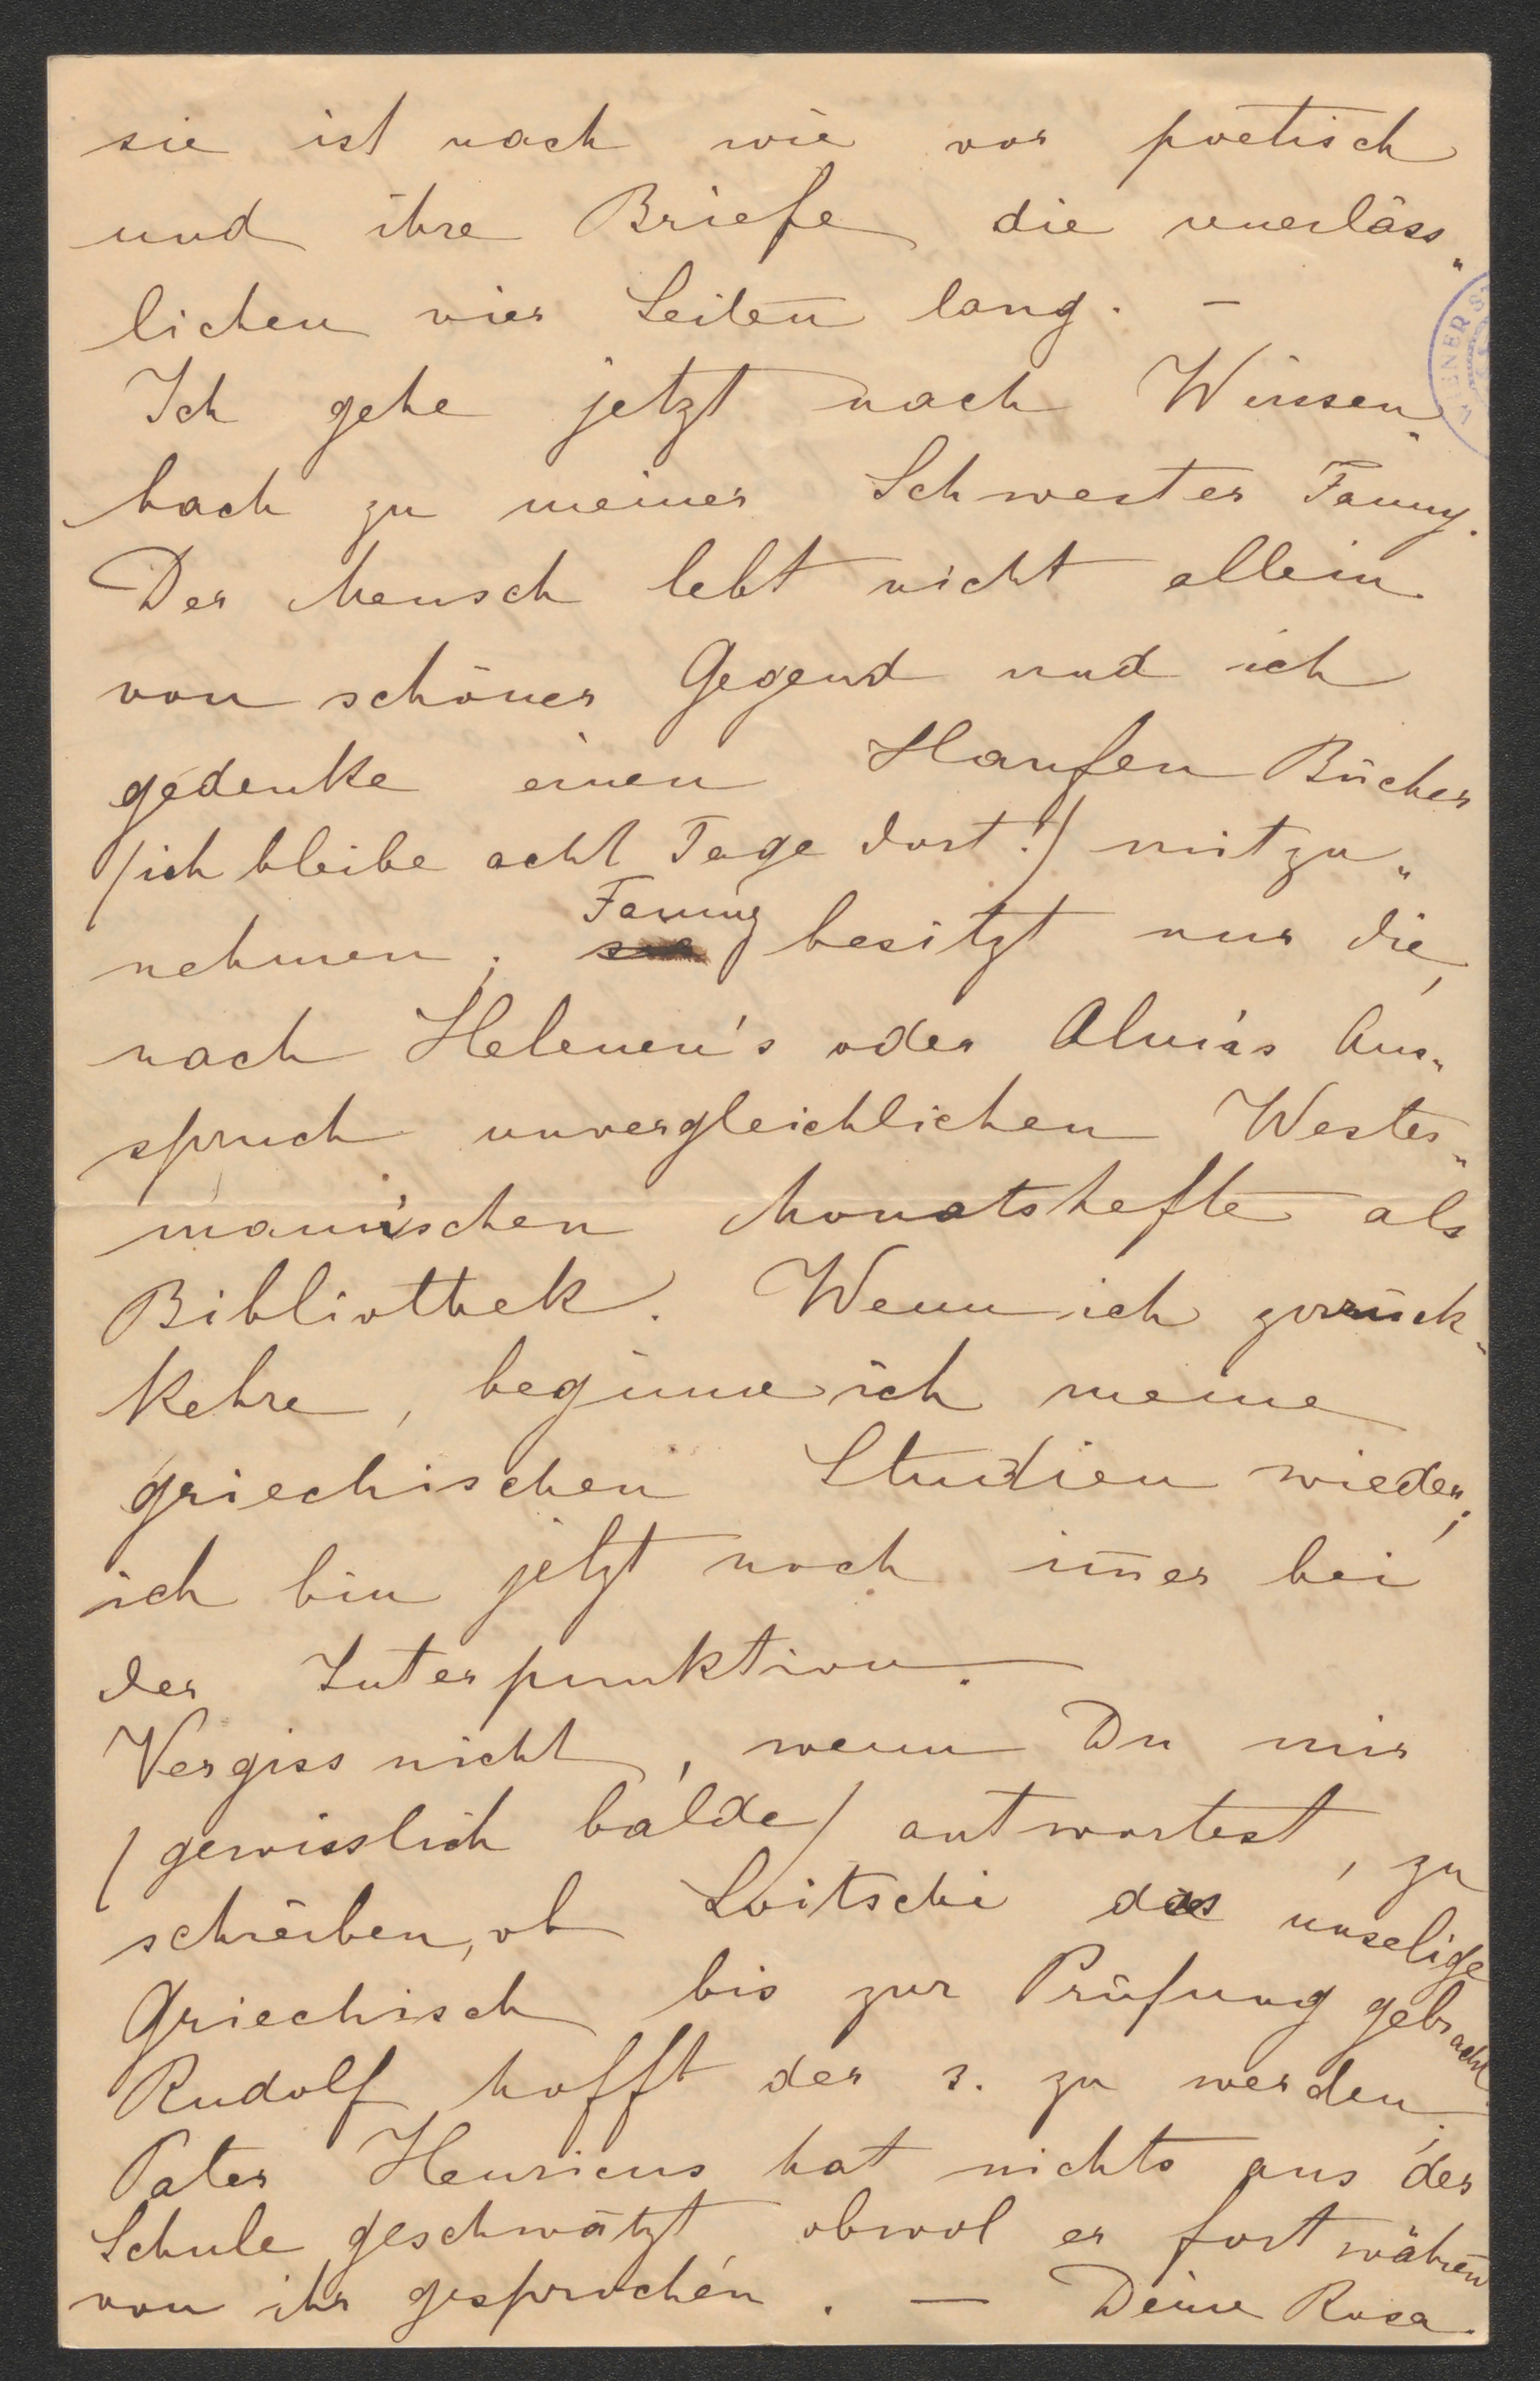 sie ist nach wie vor poetisch
und ihre Briefe die unerläss„
lichen vier Seiten lang. –
Ich gehe jetzt nach Weissen„
bach zu meiner Schwester Fanny.
Der Mensch lebt nicht allein
von schöner Gegend und ich
gedenke einen Haufen Bücher
/ich bleibe acht Tage dort!/ mitzu„
nehmen; Fanny besitzt nur die,
nach Helenen's oder Alwia's Aus„
spruch unvergleichlichen Wester„
mann'schen Monatshefte als
Bibliothek. Wenn ich zurück„
kehre, beginne ich meine
griechischen Studien wieder;
ich bin jetzt noch im̅er bei
der Interpunktion.
Vergiss nicht, wenn Du mir
/gewisslich balde/ antwortest, zu
schreiben, ob Loitschi das unselige
Griechisch bis zur Prüfung gebracht.
Rudolf hofft der 3. zu werden;
Pater Henricus hat nichts aus der
Schule geschwätzt obwol er fortwähren̅
von ihr gesprochen. – Deine Rosa.
WIENER ST